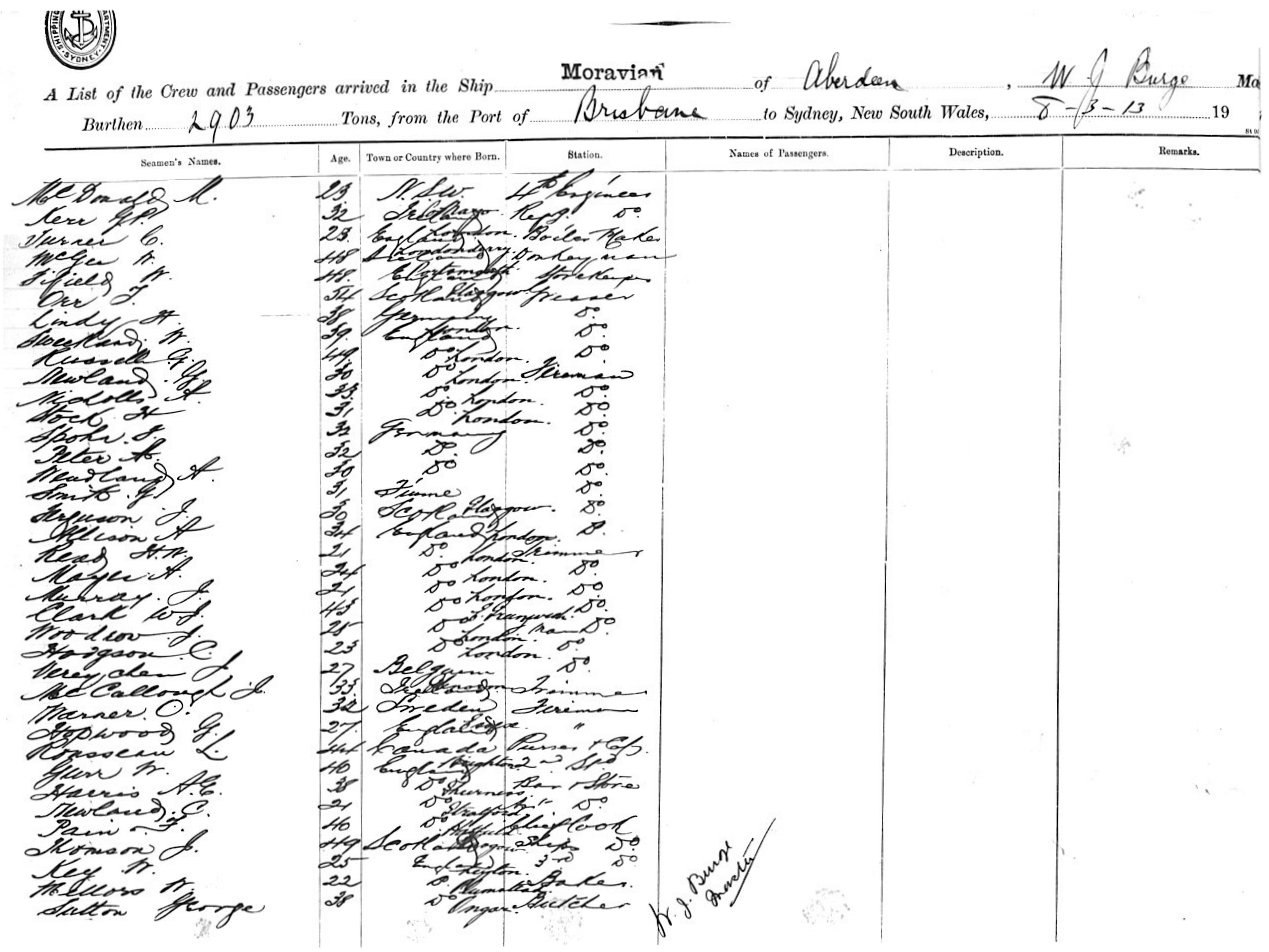 SHIPPING DEPARTMENT SYDNEY
A List of the Crew and Passengers arrived in the Ship Moravian of Aberdeen, W J Burge Ma
Burthen 2903 Tons, from the Port of Brisbane to Sydney, New South Wales, 8-3-13 19
Seamen's Names. Age. Town or Country where Born. Station. Names of Passengers. Description. Remarks.
McDonald M. 23 N.S.W. 4th Engineer
Kerr G.P. 32 Ireland Refg. Do.
Turner C. 23. England London. Boiler Maker
McGee W. 48 Londonderry Donkeyman
Fifield W. 48. Portsmouth Storekeeper
Orr J. 54 Scotland Glasgow Greaser
Lindy H. 38 Germany Do.
W. 39. England London. Do.
Russell G. 49 Do London. Do
Newland. G. 30 Do London. Fireman
Nicholls A. 33. Do London. Do.
Stock H 31 Do. London. Do.
Spohr. 32 Germany Do.
Peter A. 32 Do. Do.
Wendland A. 30 Do Do.
Smith. G. 31 Fiume Do.
Ferguson J. 30 Scotland Glasgow. Do.
Allison A 34 England London. Do.
Read H.W. 21 Do. London. Trimmer
Mayes A. 24 Do London. Do.
Murray. J. 21 Do London. Do
Clark W.J. 43 Do Do.
Woodrow J. 28 Do London. Do.
Hodgson C. 23 Do London. Do.
J 27 Belguem Do.
McCallough J. 33. Ireland Trimmer
Warner. O. 32 Sweden Fireman
Hopwood G. 27. England Essex. "
Rousseau L. 44 Canada Purser
Gurr W. 40 England Brighton 2nd
Harris A.E. 38 Do Bar & Store
Newland. C. 21 Do Stratford Do.
Pain. F. 40 Do Chief Cook
Thomson J. 49 Scotland Ships Do.
Key W. 25 England Leyton. 3rd Do
Mellors W. 22 Do Plumstead Baker.
Sutton George 38 Do Ongar. Butcher
W. J. Burge
Master